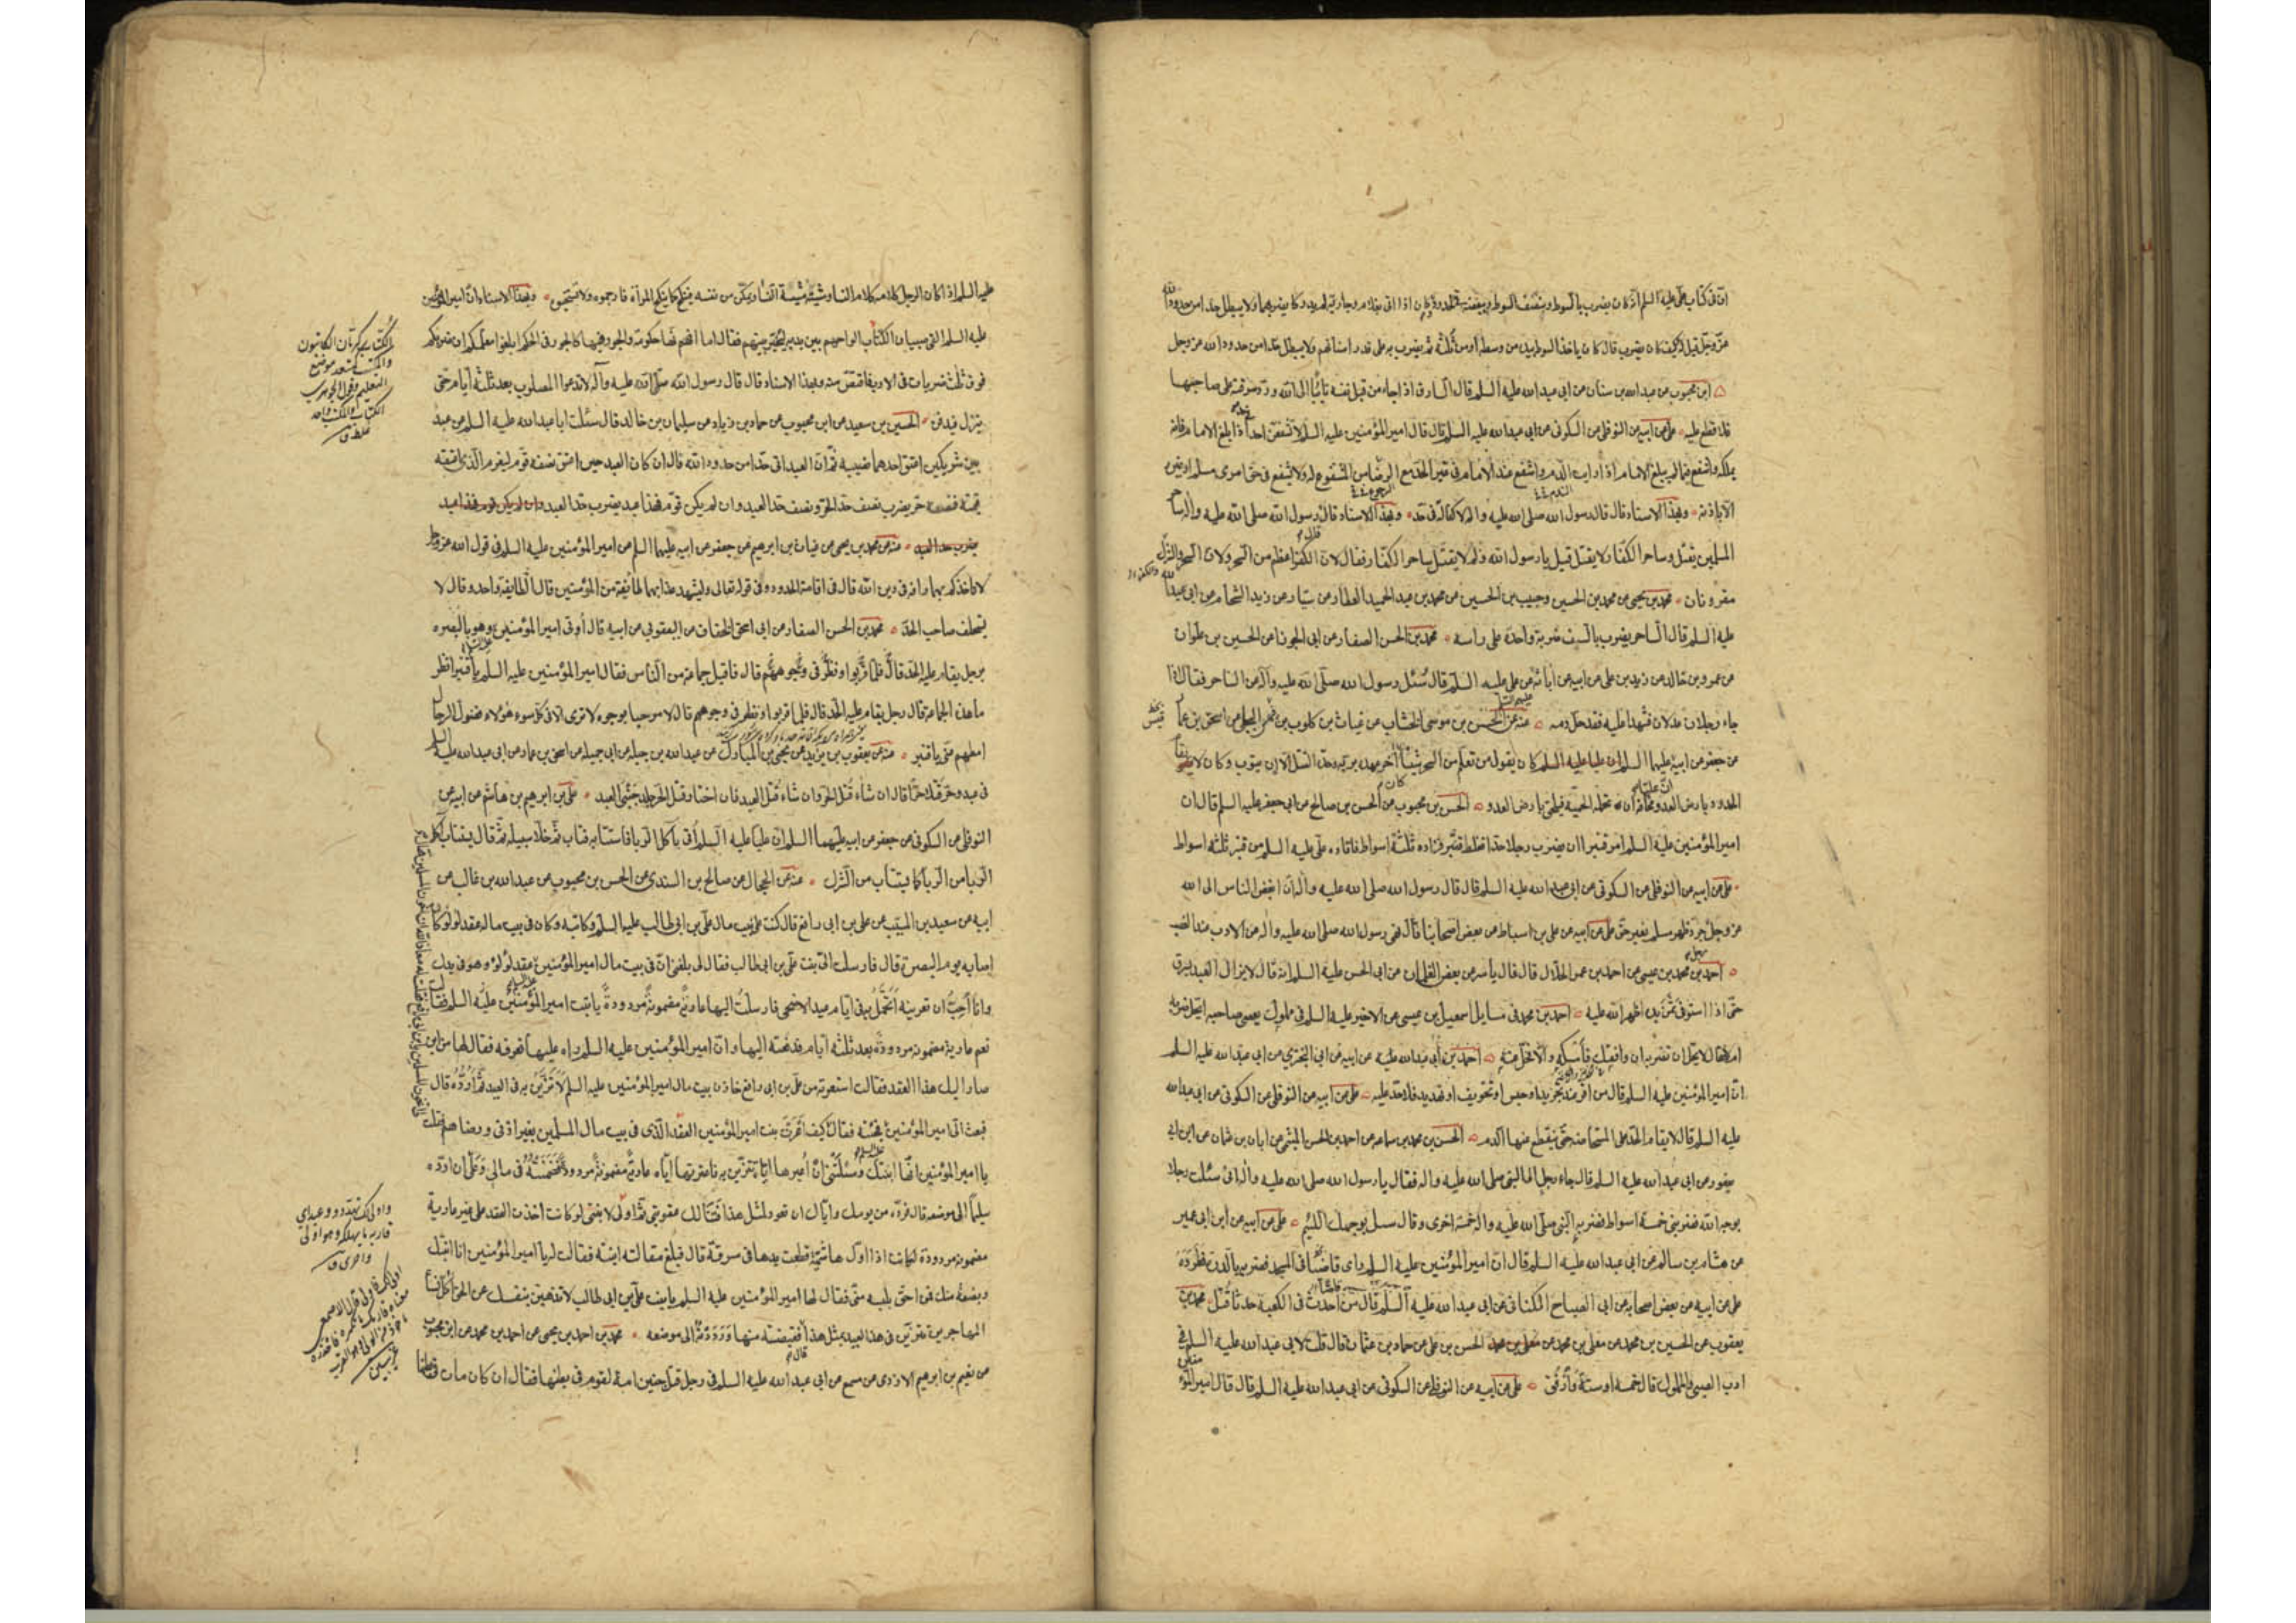 ان فى كتاب على عليه السلم انه كان يضرب بالسوط وبنصف السوط وببعضه فى الحدود وكان اذا اتى بغلام وجارية لم يدركا يضربهما ولا يبطل حدا من حدود الله
عز وجل قيل له كيف كان يضرب قال كان ياخذ السوط بيده من وسطه او من ثلثه ثم يضرب به على قدر اسنانهم ولا يبطل حدا من حدود الله عز وجل
ابن محبوب عن عبد الله بن سنان عن ابى عبد الله عليه السلم قال السارق اذا جاء من قبل نفسه تائبا الى الله ورد سرقته على صاحبها
فلا قطع عليه على عن ابيه عن النوفلى عن السكونى عن ابى عبد الله عليه السلم قال قال امير المؤمنين عليه السلم لا تشفعن احدا اذا بلغ الامام فانه
يملكه واشفع فيما لم يبلغ الامام اذا رايت الندم واشفع عند الامام فى غير الحد مع الرضا من المشفوع له ولا يشفع فى حق امرى مسلم او غيره
الا باذنه وبهذا الاسناد قال قال رسول الله صلى الله عليه واله لا كفالة فى حد وبهذا الاسناد قال قال رسول الله صلى الله عليه واله ساحر
المسلمين يقتل وساحر الكفار لا يقتل قيل يا رسول الله ولم لا يقتل ساحر الكفار فقال لان الكفر اعظم من السحر ولان السحر والشرك
مقرونان محمد بن يحيى عن محمد بن الحسين وحبيب بن الحسين عن محمد بن عبد الحميد العطار عن سيار عن زيد الشحام عن ابى عبد الله
عليه السلم قال الساحر يضرب بالسيف ضربة واحدة على راسه محمد بن الحسن الصفار عن ابى الجوزا عن الحسين بن علوان
عن عمرو بن خالد عن زيد بن على عن ابيه عن آبائه عن على عليه السلم قال سئل رسول الله صلى الله عليه وآله عن الساحر فقال اذا
جاء رجلان عدلان فشهدا عليه فقد حل دمه عنه عن الحسن بن موسى الخشاب عن غياث بن كلوب بن فيهس البجلى عن اسحق بن عمار
عن جعفر عن ابيه عليهما السلم ان عليا عليه السلم كان يقول من تعلم من السحر شيئا كان آخر عهده بربه وحده القتل الا ان يتوب وكان لا يقيم
الحدود بارض العدو مخافة ان تحمله الحمية فيلحق بارض العدو الحسن بن محبوب عن الحسن بن صالح عن ابى جعفر عليه السلم قال ان
امير المؤمنين عليه السلم امر قنبرا ان يضرب رجلا حدا فغلط قنبر فزاده ثلثة اسواط فاقاده على عليه السلم من قنبر ثلثة اسواط
على عن ابيه عن النوفلى عن السكونى عن ابى عبد الله عليه السلم قال قال رسول الله صلى الله عليه واله ان ابغض الناس الى الله
عز وجل رجل جرد ظهر مسلم بغير حق على عن ابيه عن على بن اسباط عن بعض اصحابنا قال نهى رسول الله صلى الله عليه واله عن الادب عند الغضب
احمد بن محمد بن عيسى عن احمد بن عمر الحلال قال قال ياسر عن بعض الغلمان عن ابى الحسن عليه السلم انه قال لا يزال العبد يسرق
حتى اذا استوفى ثمن يده اظهر الله عليه احمد بن محمد فى مسايل اسمعيل بن عيسى عن الاخير عليه السلم فى مملوك يعصى صاحبه ايحل ضربه
ام لا فقال لا يحل ان تضربه ان وافقك فامسكه والا فخل عنه احمد بن ابى عبد الله عليه عن ابيه عن ابى البخترى عن ابى عبد الله عليه السلم
ان امير المؤمنين عليه السلم قال من اقر عند تجريد او حبس او تخويف او تهديد فلا حد عليه على عن ابيه عن النوفلى عن السكونى عن ابى عبد الله
عليه السلم قال لا يقام الحد على المستحاضة حتى ينقطع عنها الدم الحسن بن محمد بن سماعه عن احمد بن الحسن الميثمى عن ابان بن عثمان عن ابن ابى
يعفور عن ابى عبد الله عليه السلم قال جاء رجل الى النبى صلى الله عليه واله فقال يا رسول الله صلى الله عليه واله انى سئلت رجلا
بوجه الله فضربنى خمسة اسواط فضربه النبى صلى الله عليه واله خمسة اخرى وقال سل بوجهك اللئيم على عن ابيه عن ابن ابى عمير
عن هشام بن سالم عن ابى عبد الله عليه السلم قال ان امير المؤمنين عليه السلم راى قاصا فى المسجد فضربه بالدرة وطرده
على عن ابيه عن بعض اصحابه عن ابى الصباح الكنانى عن ابى عبد الله عليه السلم قال من احدث فى الكعبة حدثا قتل محمد بن
يعقوب عن الحسين بن محمد عن معلى بن محمد عن الحسن بن على عن حماد بن عثمان قال قلت لابى عبد الله عليه السلم فى
ادب الصبى والمملوك قال خمسة او ستة وارفق على عن ابيه عن النوفلى عن السكونى عن ابى عبد الله عليه السلم قال قال امير المؤمنين
عليه السلم اذا كان الرجل كلامه كلام النسا ومشيته مشية النسا ويمكن من نفسه فينكح كما ينكح المرأة فارجموه ولا تستحيوه وبهذا الاسناد ان امير المؤمنين
عليه السلم القى صبيان الكتاب الواحهم بين يديه ليخير بينهم فقال اما انها حكومة والجور فيها كالجور فى الحكم ابلغوا معلمكم ان ضربكم
فوق ثلث ضربات فى الادب اقتص منه وبهذا الاسناد قال قال رسول الله صلى الله عليه وآله لا تدعوا المصلوب بعد ثلثة ايام حتى
ينزل فيدفن الحسين بن سعيد عن ابن محبوب عن حماد بن زياد عن سليمان بن خالد قال سئلت ابا عبد الله عليه السلم عن عبد
بين شريكين اعتق احدهما نصيبه ثم ان العبد اتى حدا من حدود الله قال ان كان العبد حين اعتق نصفه قوم ليغرم الذى اعتقه
قيمته فنصفه حر يضرب نصف حد الحر ونصف حد العبد وان لم يكن قوم فهذا عبد يضرب حد العبد وان لم يكن قوم فهذا عبد
يضرب حد العبد عنه عن محمد بن يحيى عن غياث بن ابرهيم عن جعفر عن ابيه عليهما السلم عن امير المؤمنين عليه السلم فى قول الله عز وجل
لا تاخذكم بهما رافة فى دين الله قال فى اقامة الحدود وفى قوله تعالى وليشهد عذابهما طائفة من المؤمنين قال الطايفة واحد وقال لا
يستحلف صاحب الحد محمد بن الحسن الصفار عن ابى اسحق الخفاف عن اليعقوبى عن ابيه قال أوتى امير المؤمنين وهو بالبصره
برجل يقام عليه الحد قال فلما قربوا ونظر فى وجوههم قال فاقبل جماعة من الناس فقال امير المؤمنين عليه السلم يا قنبر انظر
ما هذه الجماعة قال رجل يقام عليه الحد قال فلما قربوا ونظر فى وجوههم قال لا مرحبا بوجوه لا ترى الا فى كل سوء هؤلاء فضول الرجال
امطهم عنى يا قنبر عنه عن يعقوب بن يزيد عن يحيى بن المبارك عن عبد الله بن جبله عن ابى جميله عن اسحق بن عمار عن ابى عبد الله عليه السلم
فى عبد وحر قتلا حرا قال ان شاء قتل الحر وان شاء قتل العبد فان اختار قتل الحر جلد جنبى العبد على بن ابرهيم بن هاشم عن ابيه عن
النوفلى عن السكونى عن جعفر عن ابيه عليهما السلم ان عليا عليه السلم أتى بآكل الربا فاستتابه فتاب ثم خلا سبيله ثم قال يستتاب آكل
الربا من الربا كما يستتاب من الشرك عنه عن الجمال عن صالح بن السندى عن الحسن بن محبوب عن عبد الله بن غالب عن
ابيه عن سعيد بن المسيب عن على بن ابى رافع قال كنت على بيت مال على بن ابى طالب عليه السلم وكاتبه وكان فى بيت ماله عقد لولو كان
اصابه يوم البصرة قال فارسلت الى بنت على بن ابى طالب فقالت لى بلغنى ان فى بيت مال امير المؤمنين عقد لؤلؤ وهو فى يدك
وانا أحب ان تعيرنيه اتجمل به فى ايام عيد الاضحى فارسلت اليها عارية مضمونة مردودة يا بنت امير المؤمنين عليه السلم فقالت
نعم عارية مضمونة مردودة بعد ثلثة ايام فدفعته اليها وان امير المؤمنين عليه السلم راه عليها فعرفه فقال لها من اين
صار اليك هذا العقد فقالت استعرته من على بن ابى رافع خازن بيت مال امير المؤمنين عليه السلم لاتزين به فى العيد ثم ارده قال
فبعث الى امير المؤمنين فجئته فقال كيف اعرت بنت امير المؤمنين العقد الذى فى بيت مال المسلمين بغير اذنى ورضاهم فقلت
يا امير المؤمنين انها ابنتك وسئلتنى ان أعيرها اياه تتزين به فاعرتها اياه عارية مضمونة مردودة وضمنته فى مالى وعلى ان ارده
سليما الى موضعه قال فرده من يومك واياك ان تعود لمثل هذا فتنالك عقوبتى ثم اولى لابنتى لو كانت اخذت العقد على غير عارية
مضمونة مردودة لكانت اذا اول هاشمية قطعت يدها فى سرقة قال فبلغ مقالته ابنته فقالت له يا امير المؤمنين انا ابنتك
وبضعة منك فمن احق بلبسه منى فقال لها امير المؤمنين عليه السلم يا بنت على بن ابى طالب لا تذهبن بنفسك عن الحق اكل نساء
المهاجرين تتزين فى هذا العيد بمثل هذا فقبضته منها ورددته الى موضعه محمد بن احمد بن يحيى عن احمد بن محمد عن ابن محبوب
عن نعيم بن ابرهيم الازدى عن مسمع عن ابى عبد الله عليه السلم قال فى رجل قتل جنين امة لقوم فى بطنها فقال ان كان مات فى بطنها
الكتاب كرمان الكاتبون
والمكتب كمقعد موضع
التعليم وقول الجوهرى
الكتاب والمكتب واحد
غلط ق
واولى لك تهدد ووعيد اى
قاربه ما يهلكه وهو اولى
واحرى ق